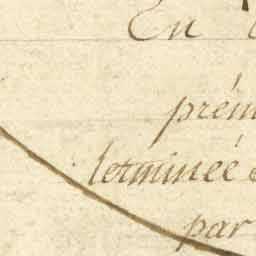 En
prém
terminée
par